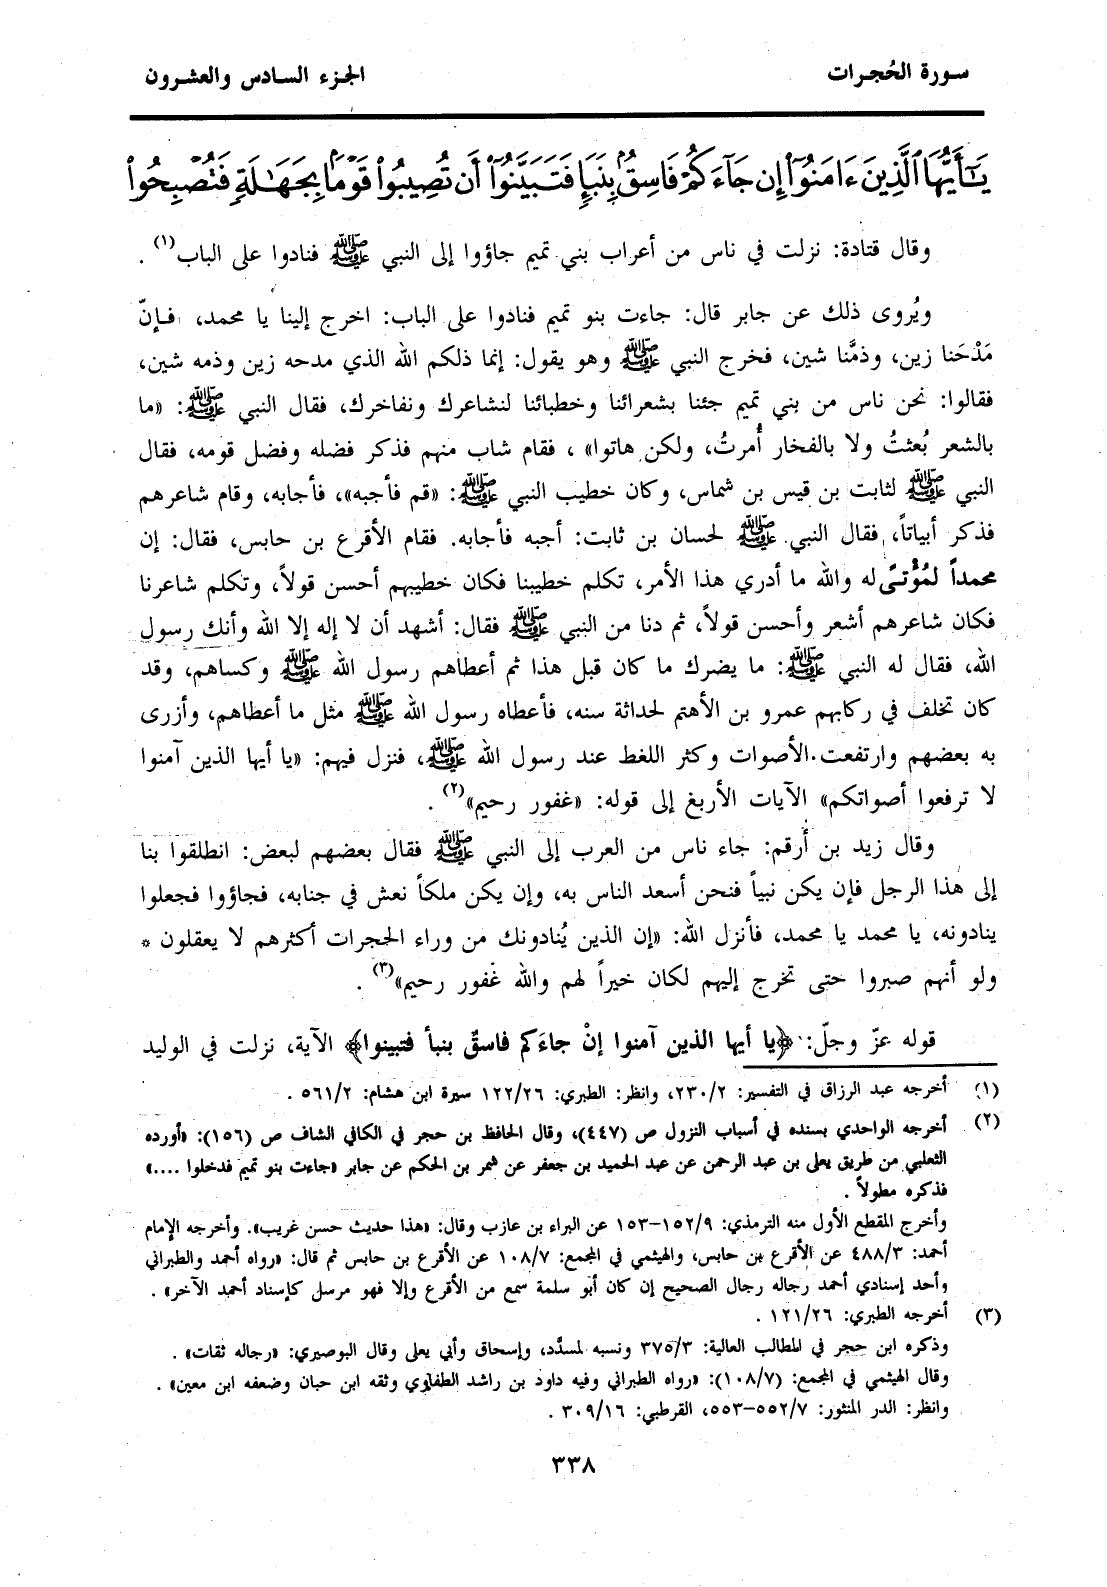 سورة الحُجرات
الجزء السادس والعشرون
يَٰٓأَيُّهَا ٱلَّذِينَ ءَامَنُوٓا۟ إِن جَآءَكُمْ فَاسِقٌۢ بِنَبَإٍ فَتَبَيَّنُوٓا۟ أَن تُصِيبُوا۟ قَوْمًۢا بِجَهَٰلَةٍ فَتُصْبِحُوا۟
وقال قتادة: نزلت في ناس من أعراب بني تميم جاؤوا إلى النبي ﷺ فنادوا على الباب(١) .
ويُروى ذلك عن جابر قال: جاءت بنو تميم فنادوا على الباب: اخرج إلينا يا محمد، فإنّ
مَدْحَنا زين، وذمَّنا شين، فخرج النبي ﷺ وهو يقول: إنما ذلكم الله الذي مدحه زين وذمه شين،
فقالوا: نحن ناس من بني تميم جئنا بشعرائنا وخطبائنا لنشاعرك ونفاخرك، فقال النبي ﷺ: «ما
بالشعر بُعثتُ ولا بالفخار أُمرتُ، ولكن هاتوا» ، فقام شاب منهم فذكر فضله وفضل قومه، فقال
النبي ﷺ لثابت بن قيس بن شماس، وكان خطيب النبي ﷺ: «قم فأجبه»، فأجابه، وقام شاعرهم
فذكر أبياتاً، فقال النبي ﷺ لحسان بن ثابت: أجبه فأجابه. فقام الأقرع بن حابس، فقال: إن
محمداً لمُؤْتىً له والله ما أدري هذا الأمر، تكلم خطيبنا فكان خطيبهم أحسن قولاً، وتكلم شاعرنا
فكان شاعرهم أشعر وأحسن قولاً، ثم دنا من النبي ﷺ فقال: أشهد أن لا إله إلا الله وأنك رسول
الله، فقال له النبي ﷺ: ما يضرك ما كان قبل هذا ثم أعطاهم رسول الله ﷺ وكساهم، وقد
كان تخلف في ركابهم عمرو بن الأهتم لحداثة سنه، فأعطاه رسول الله ﷺ مثل ما أعطاهم، وأزرى
به بعضهم وارتفعت الأصوات وكثر اللغط عند رسول الله ﷺ، فنزل فيهم: «يا أيها الذين آمنوا
لا ترفعوا أصواتكم» الآيات الأربع إلى قوله: «غفور رحيم»(٢) .
وقال زيد بن أرقم: جاء ناس من العرب إلى النبي ﷺ فقال بعضهم لبعض: انطلقوا بنا
إلى هذا الرجل فإن يكن نبياً فنحن أسعد الناس به، وإن يكن ملكاً نعش في جنابه، فجاؤوا فجعلوا
ينادونه، يا محمد يا محمد، فأنزل الله: «إن الذين يُنادونك من وراء الحجرات أكثرهم لا يعقلون *
ولو أنهم صبروا حتى تخرج إليهم لكان خيراً لهم والله غفور رحيم»(٣) .
قوله عزّ وجلّ: ﴿يا أيها الذين آمنوا إنْ جاءَكم فاسقٌ بنبأ فتبينوا﴾ الآية، نزلت في الوليد
(١) أخرجه عبد الرزاق في التفسير: ٢٣٠/٢، وانظر: الطبري: ١٢٢/٢٦ سيرة ابن هشام: ٥٦١/٢ .
(٢) أخرجه الواحدي بسنده في أسباب النزول ص (٤٤٧)، وقال الحافظ بن حجر في الكافي الشاف ص (١٥٦): «أورده
الثعلبي من طريق يعلى بن عبد الرحمن عن عبد الحميد بن جعفر عن شمر بن الحكم عن جابر «جاءت بنو تميم فدخلوا ....»
فذكره مطولاً .
وأخرج المقطع الأول منه الترمذي: ١٥٢/٩-١٥٣ عن البراء بن عازب وقال: «هذا حديث حسن غريب». وأخرجه الإمام
أحمد: ٤٨٨/٣ عن الأقرع بن حابس، والهيثمي في المجمع: ١٠٨/٧ عن الأقرع بن حابس ثم قال: «رواه أحمد والطبراني
وأحد إسنادي أحمد رجاله رجال الصحيح إن كان أبو سلمة سمع من الأقرع وإلا فهو مرسل كإسناد أحمد الآخر» .
(٣) أخرجه الطبري: ١٢١/٢٦ .
وذكره ابن حجر في المطالب العالية: ٣٧٥/٣ ونسبه لمسدَّد، وإسحاق وأبي يعلى وقال البوصيري: «رجاله ثقات» .
وقال الهيثمي في المجمع: (١٠٨/٧): «رواه الطبراني وفيه داود بن راشد الطفاوي وثقه ابن حبان وضعفه ابن معين» .
وانظر: الدر المنثور: ٥٥٢/٧-٥٥٣، القرطبي: ٣٠٩/١٦ .
٣٣٨